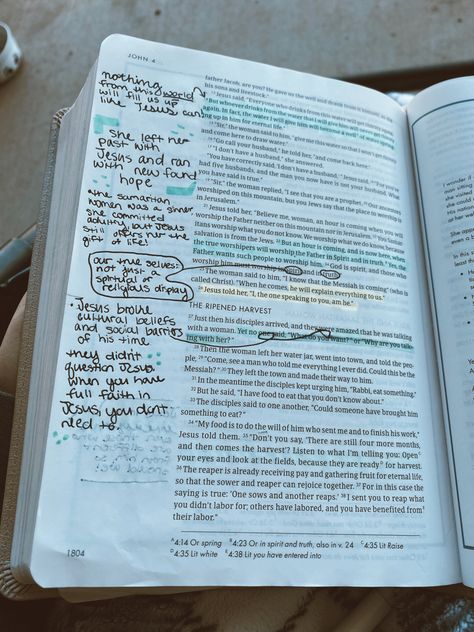 JOHN 4
nothing
from this world
will fill us up
like Jesus can!
she left her
past with
Jesus and ran
with new found
hope
the samaritan
women was a sinner,
she committed
adultry, but Jesus
still offers her the
gift of life!
our true selves:
not just a
spiritual or
religious display
Jesus broke
cultural beliefs
and social barriers
of his time
they didn't
question Jesus
when you have
full faith in
Jesus, you don't
need to.
father Jacob, are you? He gave us the well and drank from it himself, as did
his sons and livestock."
13 Jesus said, "Everyone who drinks from this water will get thirsty
again. 14 But whoever drinks from the water that I will give him will never get thirsty
again. In fact, the water I will give him will become a well of water
springing up in him for eternal life."
15 "Sir," the woman said to him, "give me this water so that I won't get thirsty
and come here to draw water."
16 "Go call your husband," he told her, "and come back here."
17 "I don't have a husband," she answered.
"You have correctly said, 'I don't have a husband,'" Jesus said. 18 "For you've
had five husbands, and the man you now have is not your husband. What
you have said is true."
19 "Sir," the woman replied, "I see that you are a prophet. 20 Our ancestors
worshiped on this mountain, but you Jews say that the place to worship is
in Jerusalem."
21 Jesus told her, "Believe me, woman, an hour is coming when you will
worship the Father neither on this mountain nor in Jerusalem. 22 You Samaritans
worship what you do not know. We worship what we do know, because
salvation is from the Jews. 23 But an hour is coming, and is now here, when
the true worshipers will worship the Father in Spirit and in truth. Yes, the
Father wants such people to worship him. 24 God is spirit, and those who
worship him must worship in Spirit and in truth."
25 The woman said to him, "I know that the Messiah is coming" (who is
called Christ). "When he comes, he will explain everything to us."
26 Jesus told her, "I, the one speaking to you, am he."
THE RIPENED HARVEST
27 Just then his disciples arrived, and they were amazed that he was talking
with a woman. Yet no one said, "What do you want?" or "Why are you talk-
ing with her?"
28 Then the woman left her water jar, went into town, and told the peo-
ple, 29 "Come, see a man who told me everything I ever did. Could this be the
Messiah?" 30 They left the town and made their way to him.
31 In the meantime the disciples kept urging him, "Rabbi, eat something."
32 But he said, "I have food to eat that you don't know about."
33 The disciples said to one another, "Could someone have brought him
something to eat?"
34 "My food is to do the will of him who sent me and to finish his work,"
Jesus told them. 35 "Don't you say, 'There are still four more months,
and then comes the harvest'? Listen to what I'm telling you: Open
your eyes and look at the fields, because they are ready D for harvest.
36 The reaper is already receiving pay and gathering fruit for eternal life,
so that the sower and reaper can rejoice together. 37 For in this case the
saying is true: 'One sows and another reaps.' 38 I sent you to reap what
you didn't labor for; others have labored, and you have benefited from E
their labor."
A 4:14 Or spring B 4:23 Or in spirit and truth, also in v. 24 C 4:35 Lit Raise
D 4:35 Lit white E 4:38 Lit you have entered into
1804